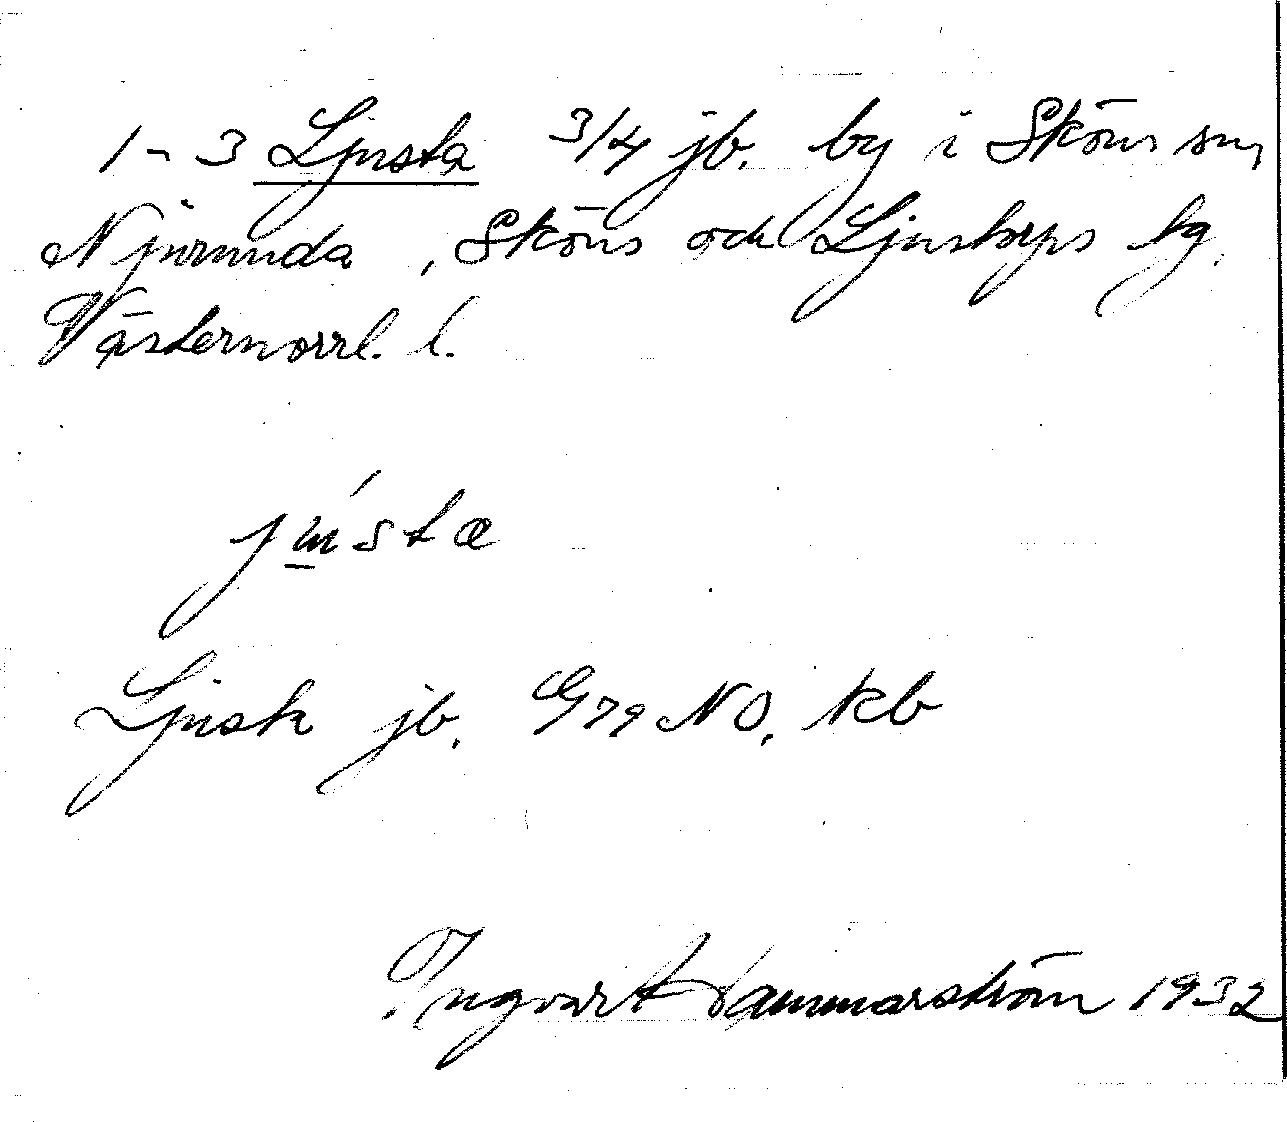 1-3 Ljusta 3/4 jb. by i Sköns sn,
Njurunda, Sköns och Ljustorps tg.
Västernorrl. l.
jústa
Ljusta jb. G 79 NO. kb
Ingvart Hammarström 1932